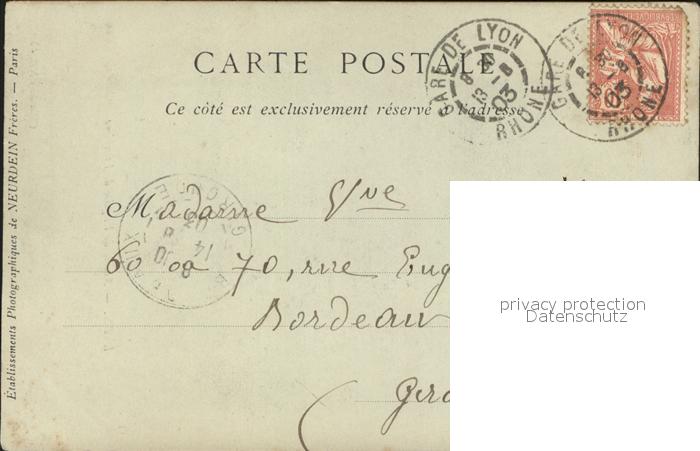 CARTE POSTALE
Ce côté est exclusivement réservé à l'adresse
GARE DE LYON
RHONE
13
03
GARE DE LYON
RHONE
13
03
Madame Vve
60 ou 70, rue Eug
Bordeau
Giro
privacy protection
Datenschutz
Établissements Photographiques de NEURDEIN Frères. — Paris